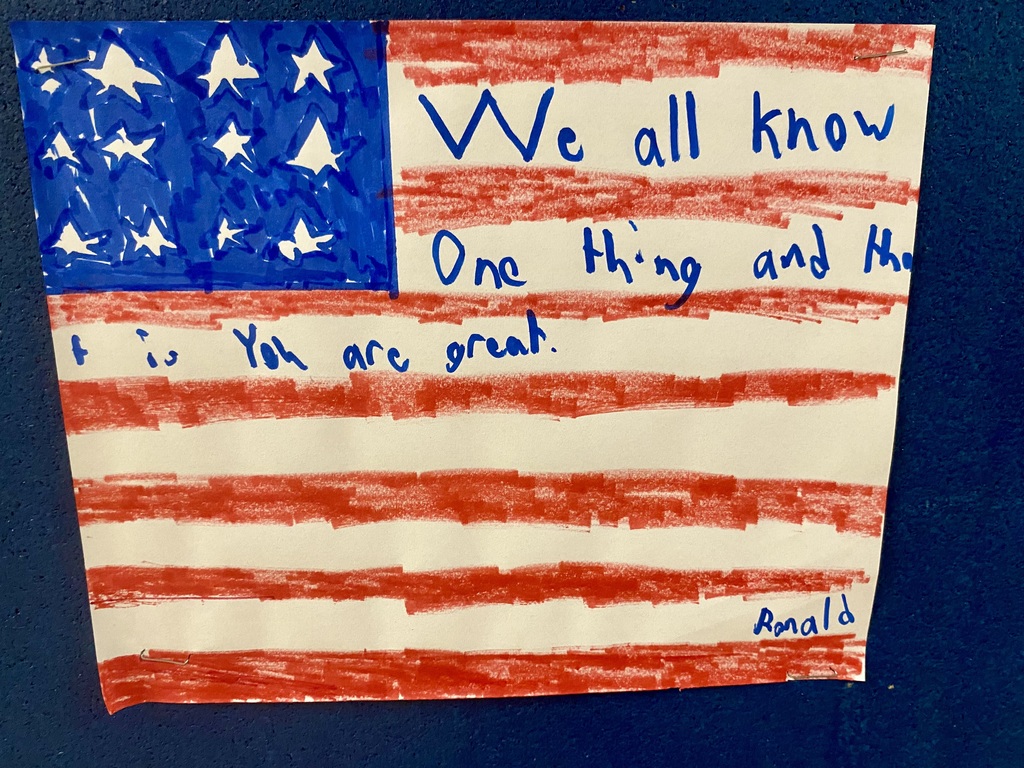 We all know
One thing and tha
t is You are great.
Ronald